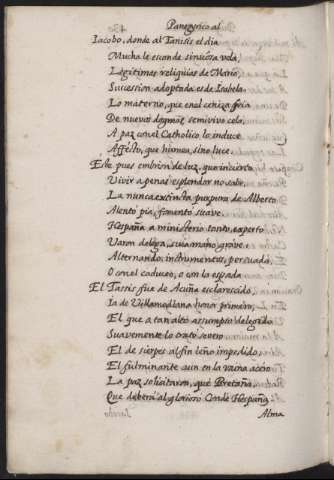 Panegyrico al
Iacobo, donde al Tamisis el dia
Mucha le esconde sinuosa vela,
Legitimas reliquias de Maria,
Succession adoptada es de Isabela.
Lo materno, que en el ceniza fria
De nuevos dogmas semivivo cela,
A paz con el Catholico lo induce
Affecto, que humea, sino luce.
Este pues embrion de luz, que incierta
Vivir apenas esplendor no sabe
La nunca extincta purpura de Alberto
Alentò pia, fomentò suave.
Hespaña a ministerio tanto experto
Varon delega, cuia mano grave
Alternando instrumentos, persuada,
O con el caduceo, o con la espada
El Tassis fue de Acuña esclarecido,
Ia de Villamediana honor primero,
El que a tan alto assumpto delegido
Suavemente lo tratò severo
El de sierpes al fin leño impedido,
El fulminante aun en la vaina azero
La paz solicitaron, que Bretaña,
Que deberà al glorioso Conde Hespaña
Alma